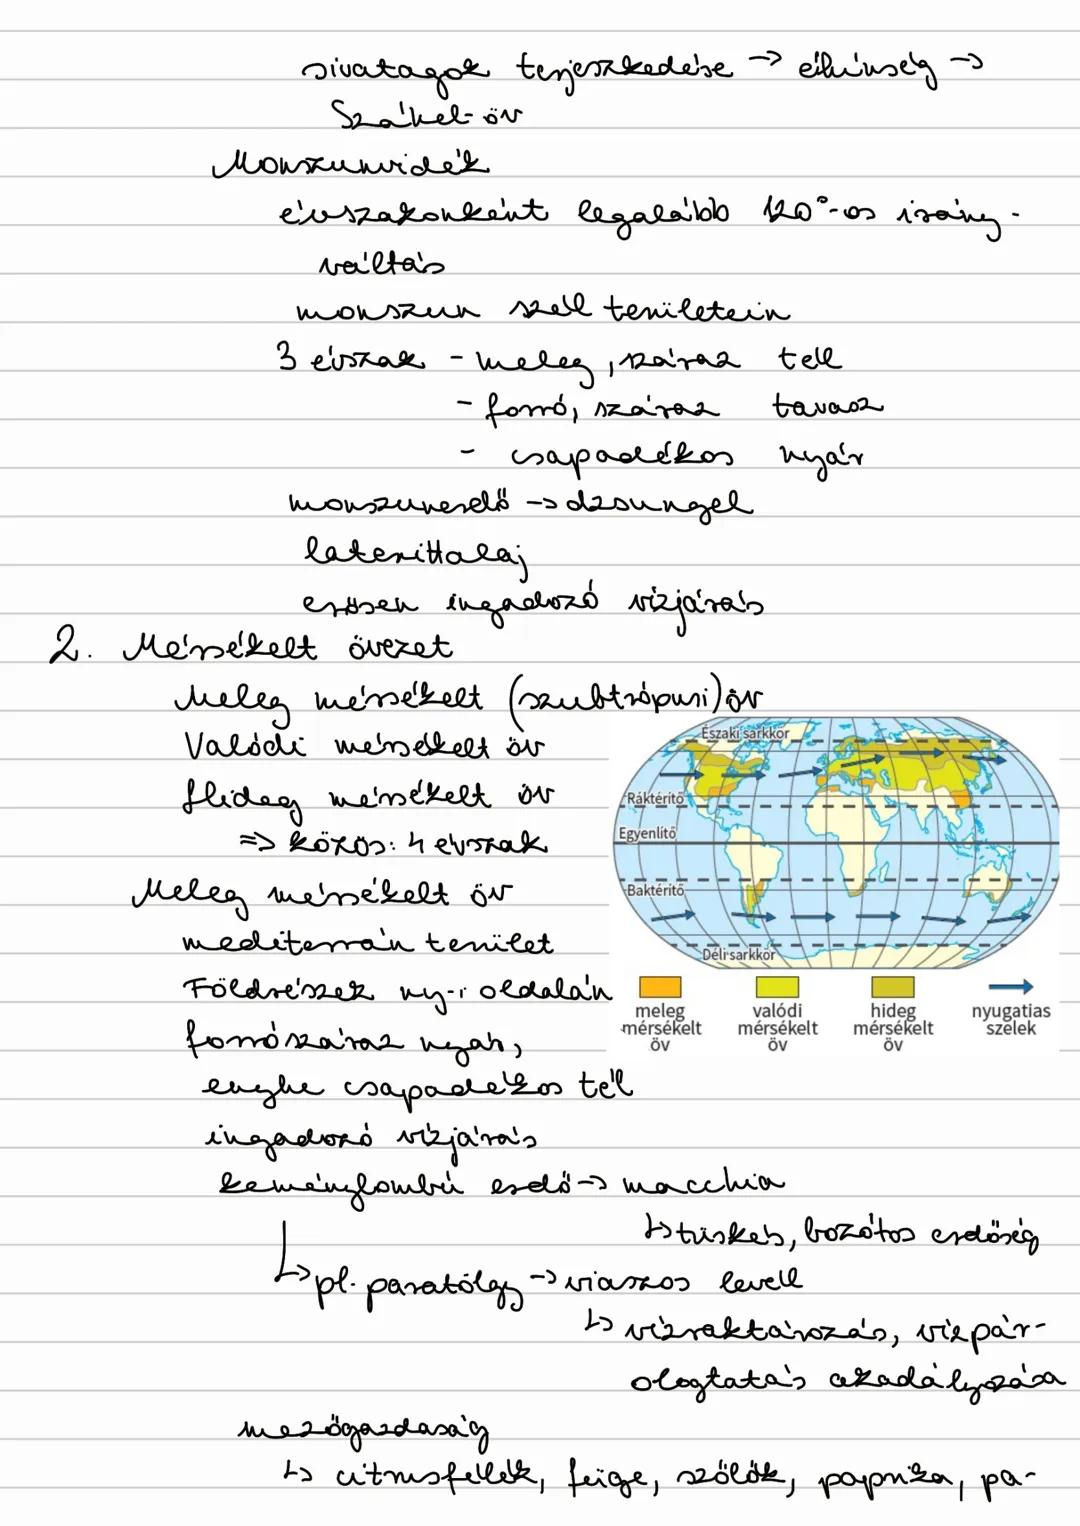 sivatagok terjeszkedése → éhínség →
Száhel-öv
Monszunvidék
évszakonként legalább 120°-os irány-
váltás
monszun szél területein
3 évszak - meleg, száraz tél
- forró, száraz tavasz
- csapadékos nyár
monszunerdő → dzsungel
laterittalaj
erősen ingadozó vízjárás
2. Mérsékelt övezet
Meleg mérsékelt (szubtrópusi) öv
Valódi mérsékelt öv
Hideg mérsékelt öv
=> közös: 4 évszak
Meleg mérsékelt öv
mediterrán terület
Földrészek ny-i oldalán
forró száraz nyár,
enyhe csapadékos tél
ingadozó vízjárás
keménylombú erdő → macchia
↳ tüskés, bozótos erdőség
↳ pl. paratölgy → viaszos levél
↳ vízraktározás, vízpár-
ologtatás akadályozása
mezőgazdaság
↳ citrusfélék, füge, szőlők, paprika, pa-
Északi sarkkör
Ráktérítő
Egyenlítő
Baktérítő
Déli sarkkör
meleg mérsékelt öv
valódi mérsékelt öv
hideg mérsékelt öv
nyugatias szelek